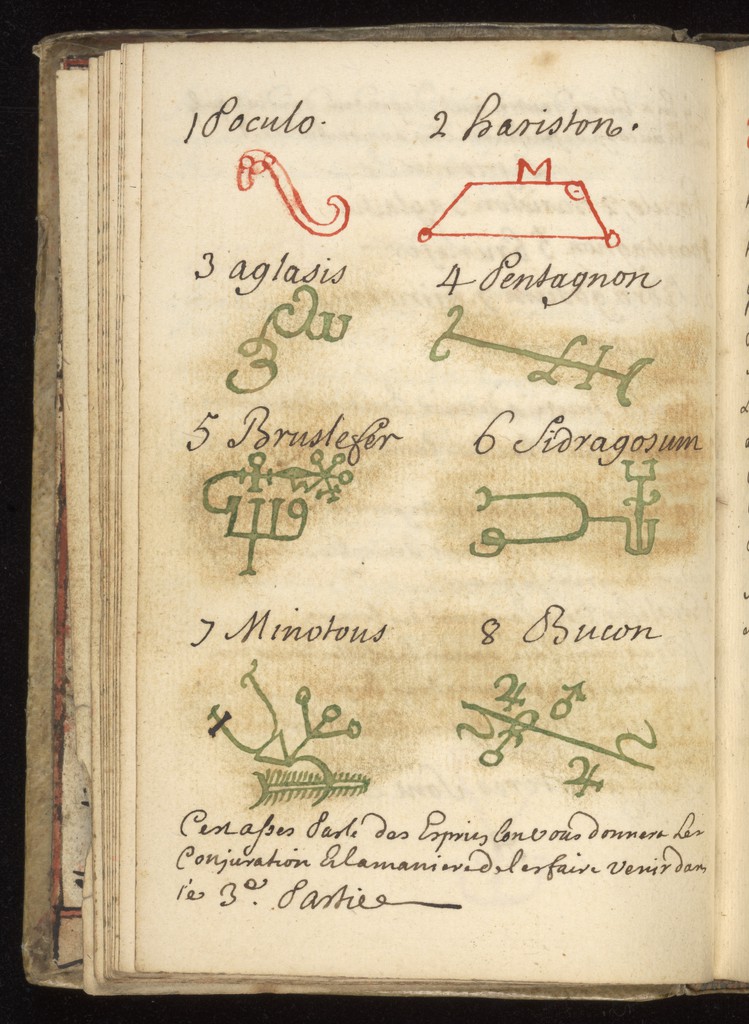 1 Poculo. 2 hariston.
M
3 aglasis 4 Pentagnon
5 Bruslefer 6 Sidragosum
7 Minotous 8 Bucon
C'en asses Parlé des Espris lon vous donnera Les
Conjuration Et la maniere de les faire venir dans
Ce 3.e Partie